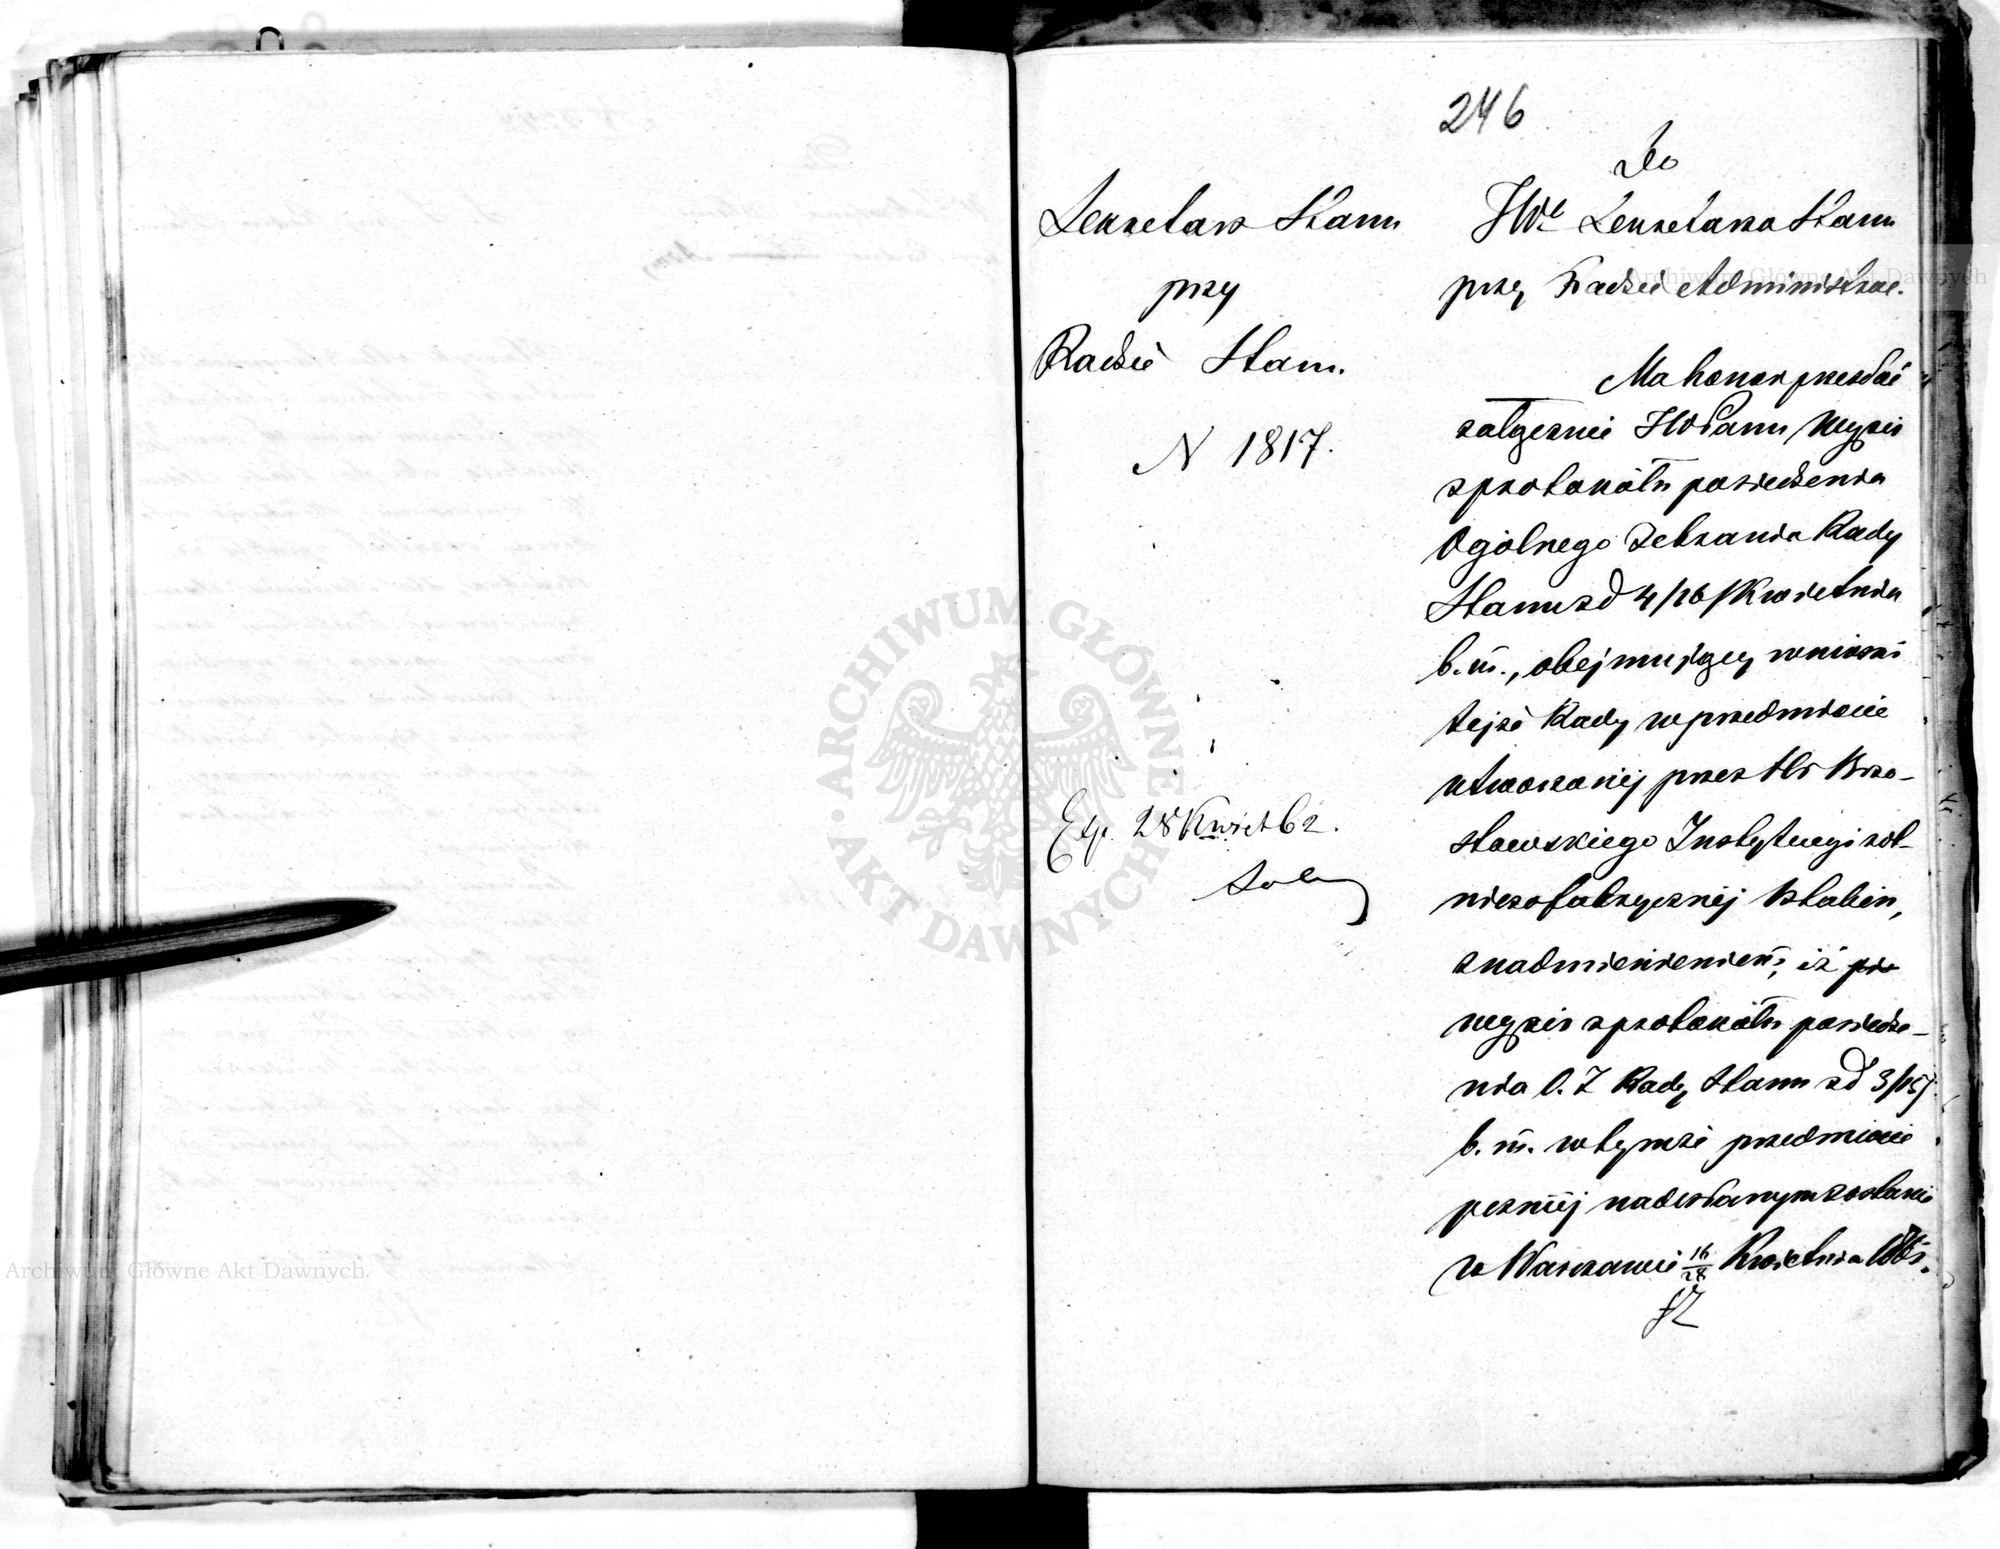 246
Sekretarz Stanu
przy
Radzie Stanu.
N 1817.
Exp. 28 Kwiet 62.
Do
JWo Sekretarza Stanu
przy Radzie Administrac.
Ma honor przesłać
załącznie JWPanu Wypis
z protokółu posiedzenia
Ogólnego Zebrania Rady
Stanu z d 4/16/ Kwietnia
b. m., obejmujący wnioski
tejże Rady w przedmiocie
utworzonej przez Hr Brzo-
stowskiego Instytucyi rol-
niczo fabrycznej Sztabin,
z nadmienieniem, iż
wypis z protokółu posiedze-
nia O. Z Rady Stanu z d 3/15/
b. m. w tymże przedmiocie
później nadesłanym zostanie
w Warszawie 16/28 Kwietnia
ARCHIWUM GŁÓWNE AKT DAWNYCH
Archiwum Główne Akt Dawnych
Archiwum Główne Akt Dawnych.